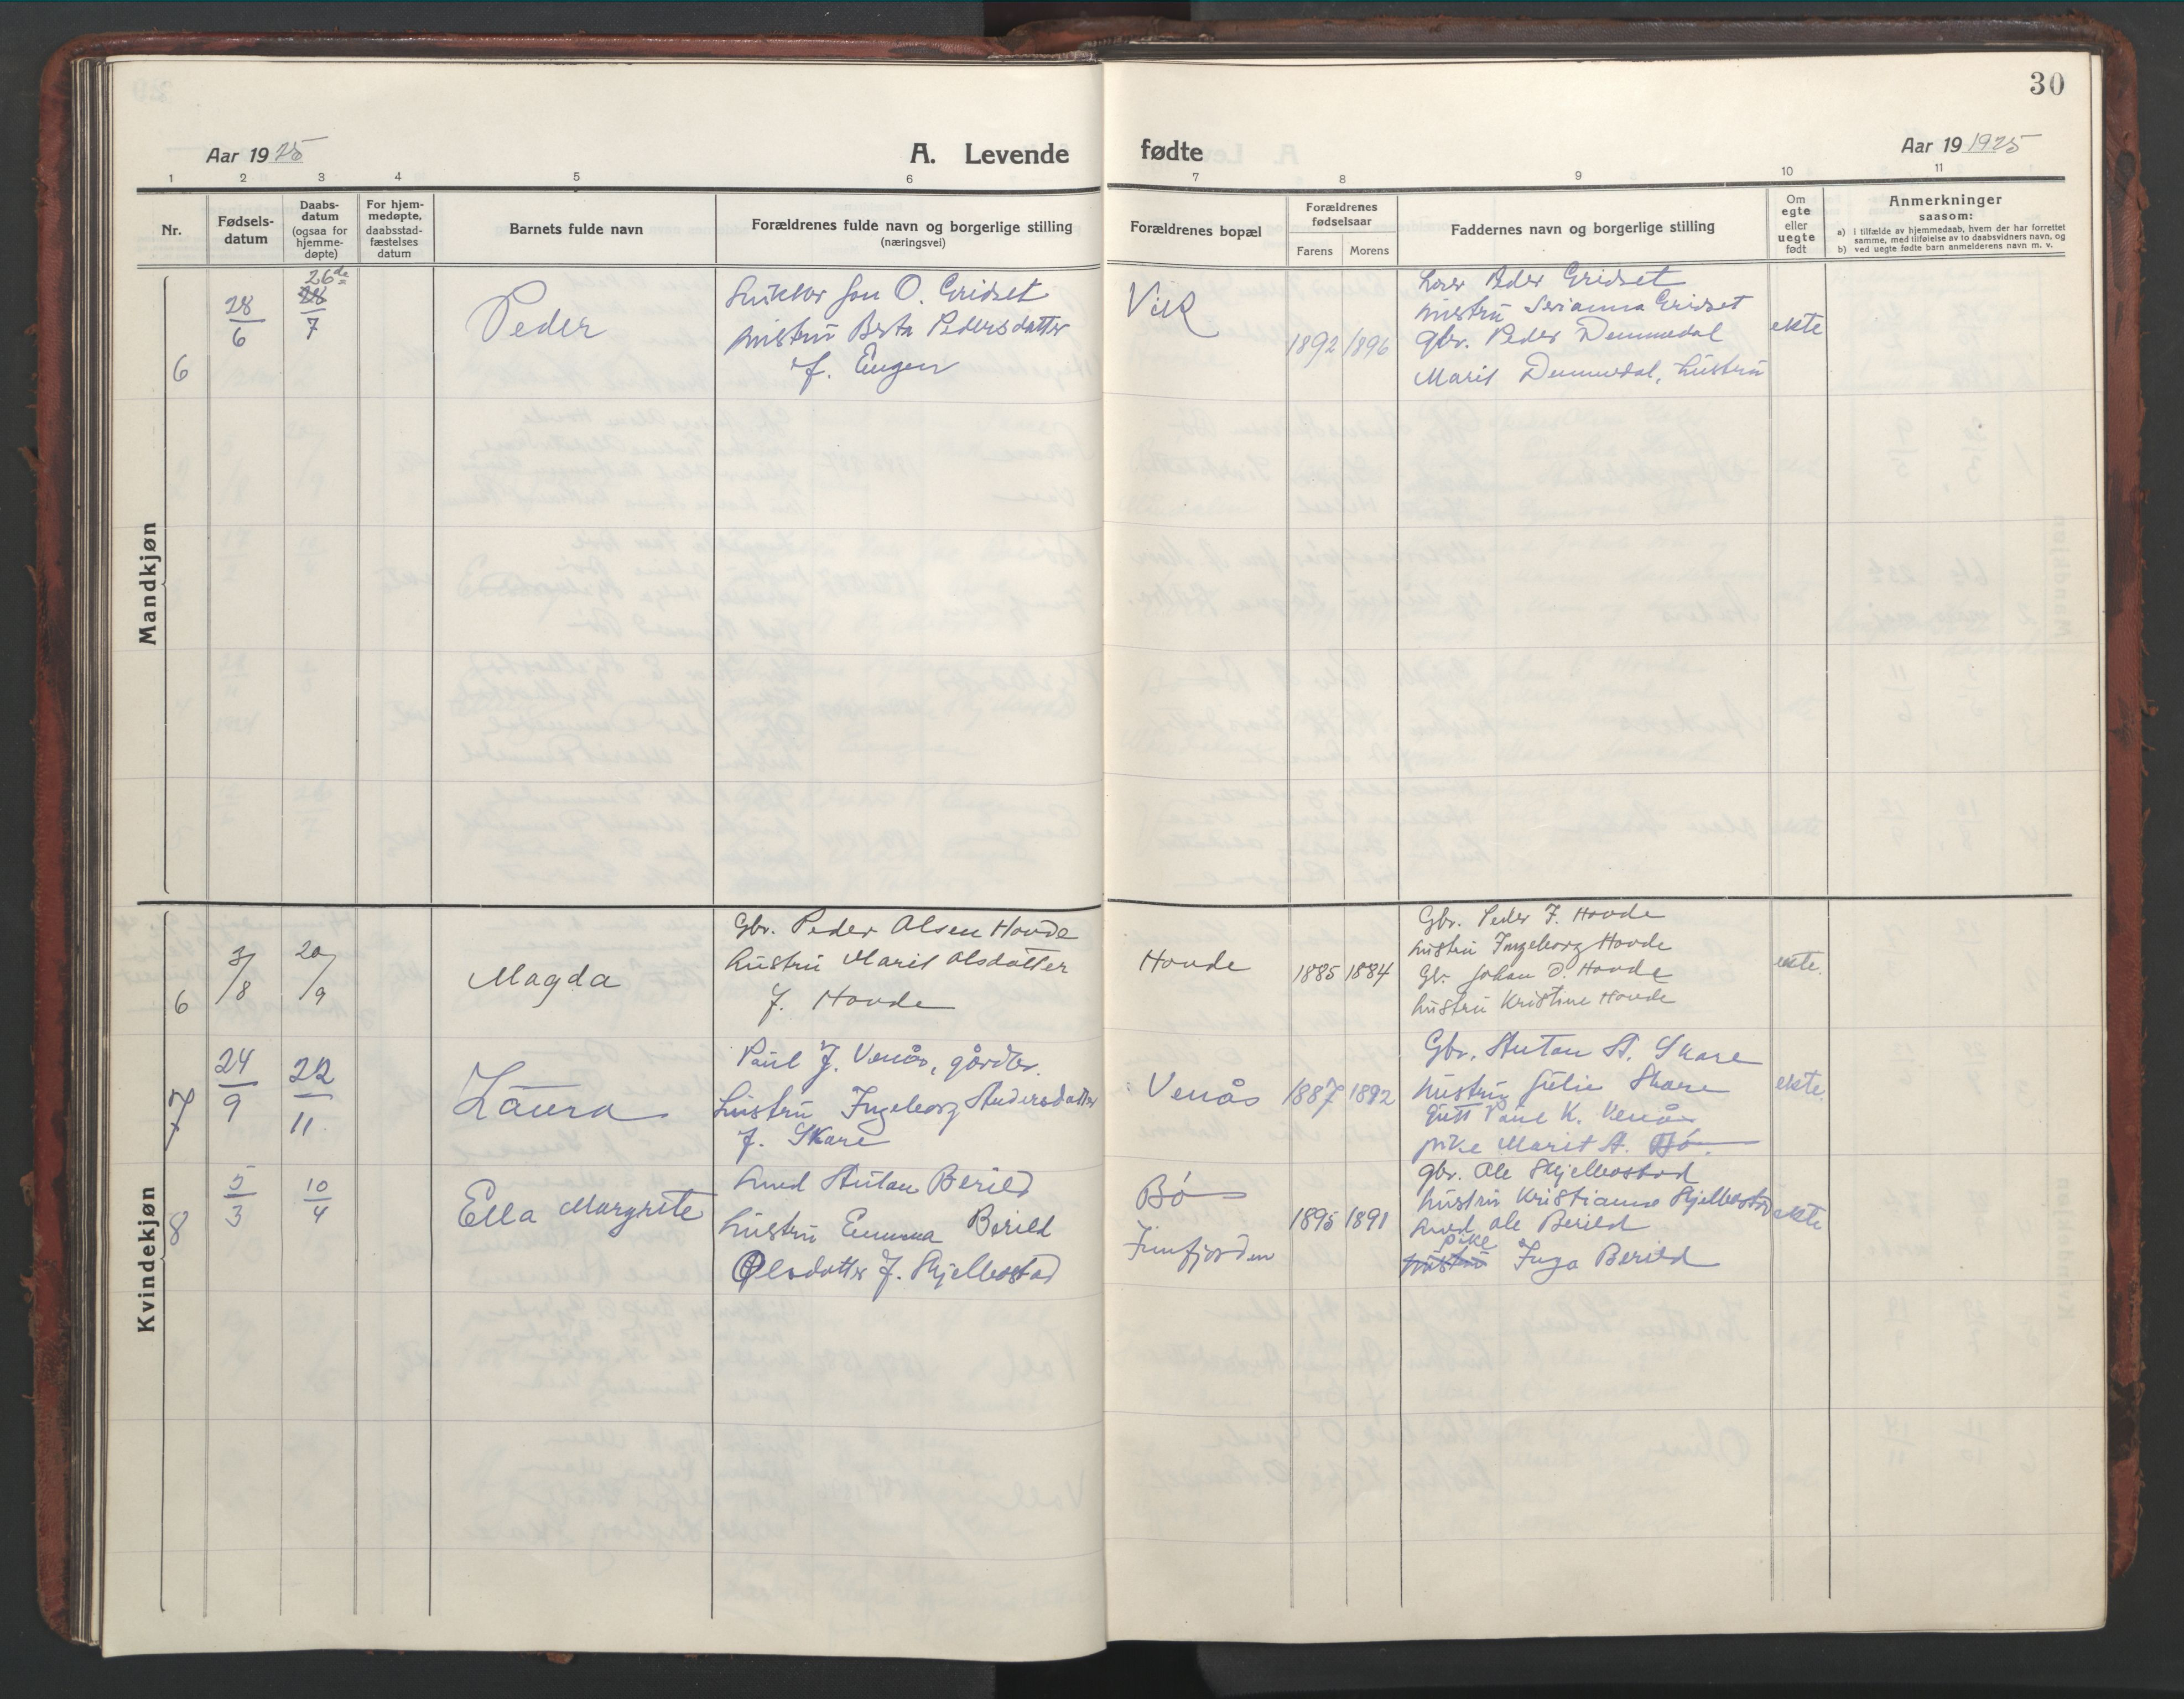 30
Aar 1925
A. Levende fødte
Aar 19 1925
1 2 3 4 5 6 7 8 9 10 11
Nr.
Fødsels-
datum
Daabs-
datum
(ogsaa for
hjemme-
døpte)
For hjem-
medøpte,
daabsstad-
fæstelses
datum
Barnets fulde navn
Forældrenes fulde navn og borgerlige stilling
(næringsvei)
Forældrenes bopæl
Forældrenes
fødselsaar
Farens Morens
Faddernes navn og borgerlige stilling
Om
egte
eller
uegte
født
Anmerkninger
saasom:
a) i tilfælde av hjemmedaab, hvem der har forrettet
samme, med tilføielse av to daabsvidners navn, og
b) ved uegte fødte barn anmelderens navn m. v.
Mandkjøn
6
28/6
26de
28/7
Peder
Snikker Jon O. Gridset
hustru Berta Pedersdatter
f. Engen
Vik
1892 1896
Peder Gridset
hustru Serianna Gridset
gbr. Peder Demmedal
Marit Demmedal, hustru
ekte
Kvindekjøn
6
3/8
20/9
Magda
Gbr. Peder Olsen Hovde
hustru Marit Olsdatter
f. Hovde
Hovde
1885 1884
Gbr. Peder J. Hovde
hustru Ingeborg Hovde
Gbr. Johan O. Hovde
hustru Kristine Hovde
ekte.
7
24/9
22/11
Laura
Paul J. Venås, gårdbr.
hustru Ingeborg Andersdatter
f. Skare
Venås
1887 1892
Gbr. Anton A. Skare
hustru Julie Skare
Gutt Paul K. Venås
pike Marit A. Bö.
ekte.
8
5/3
10/4
Ella Margrete
Smed Anton Berild
hustru Emma Berild
Olsdatter f. Skjelbostad
Bö
Innfjorden
1895 1891
gbr. Ole Skjelbostad
hustru Kristianna Skjelbostad
Smed Ole Berild
pike
hustru Inga Berild
ekte